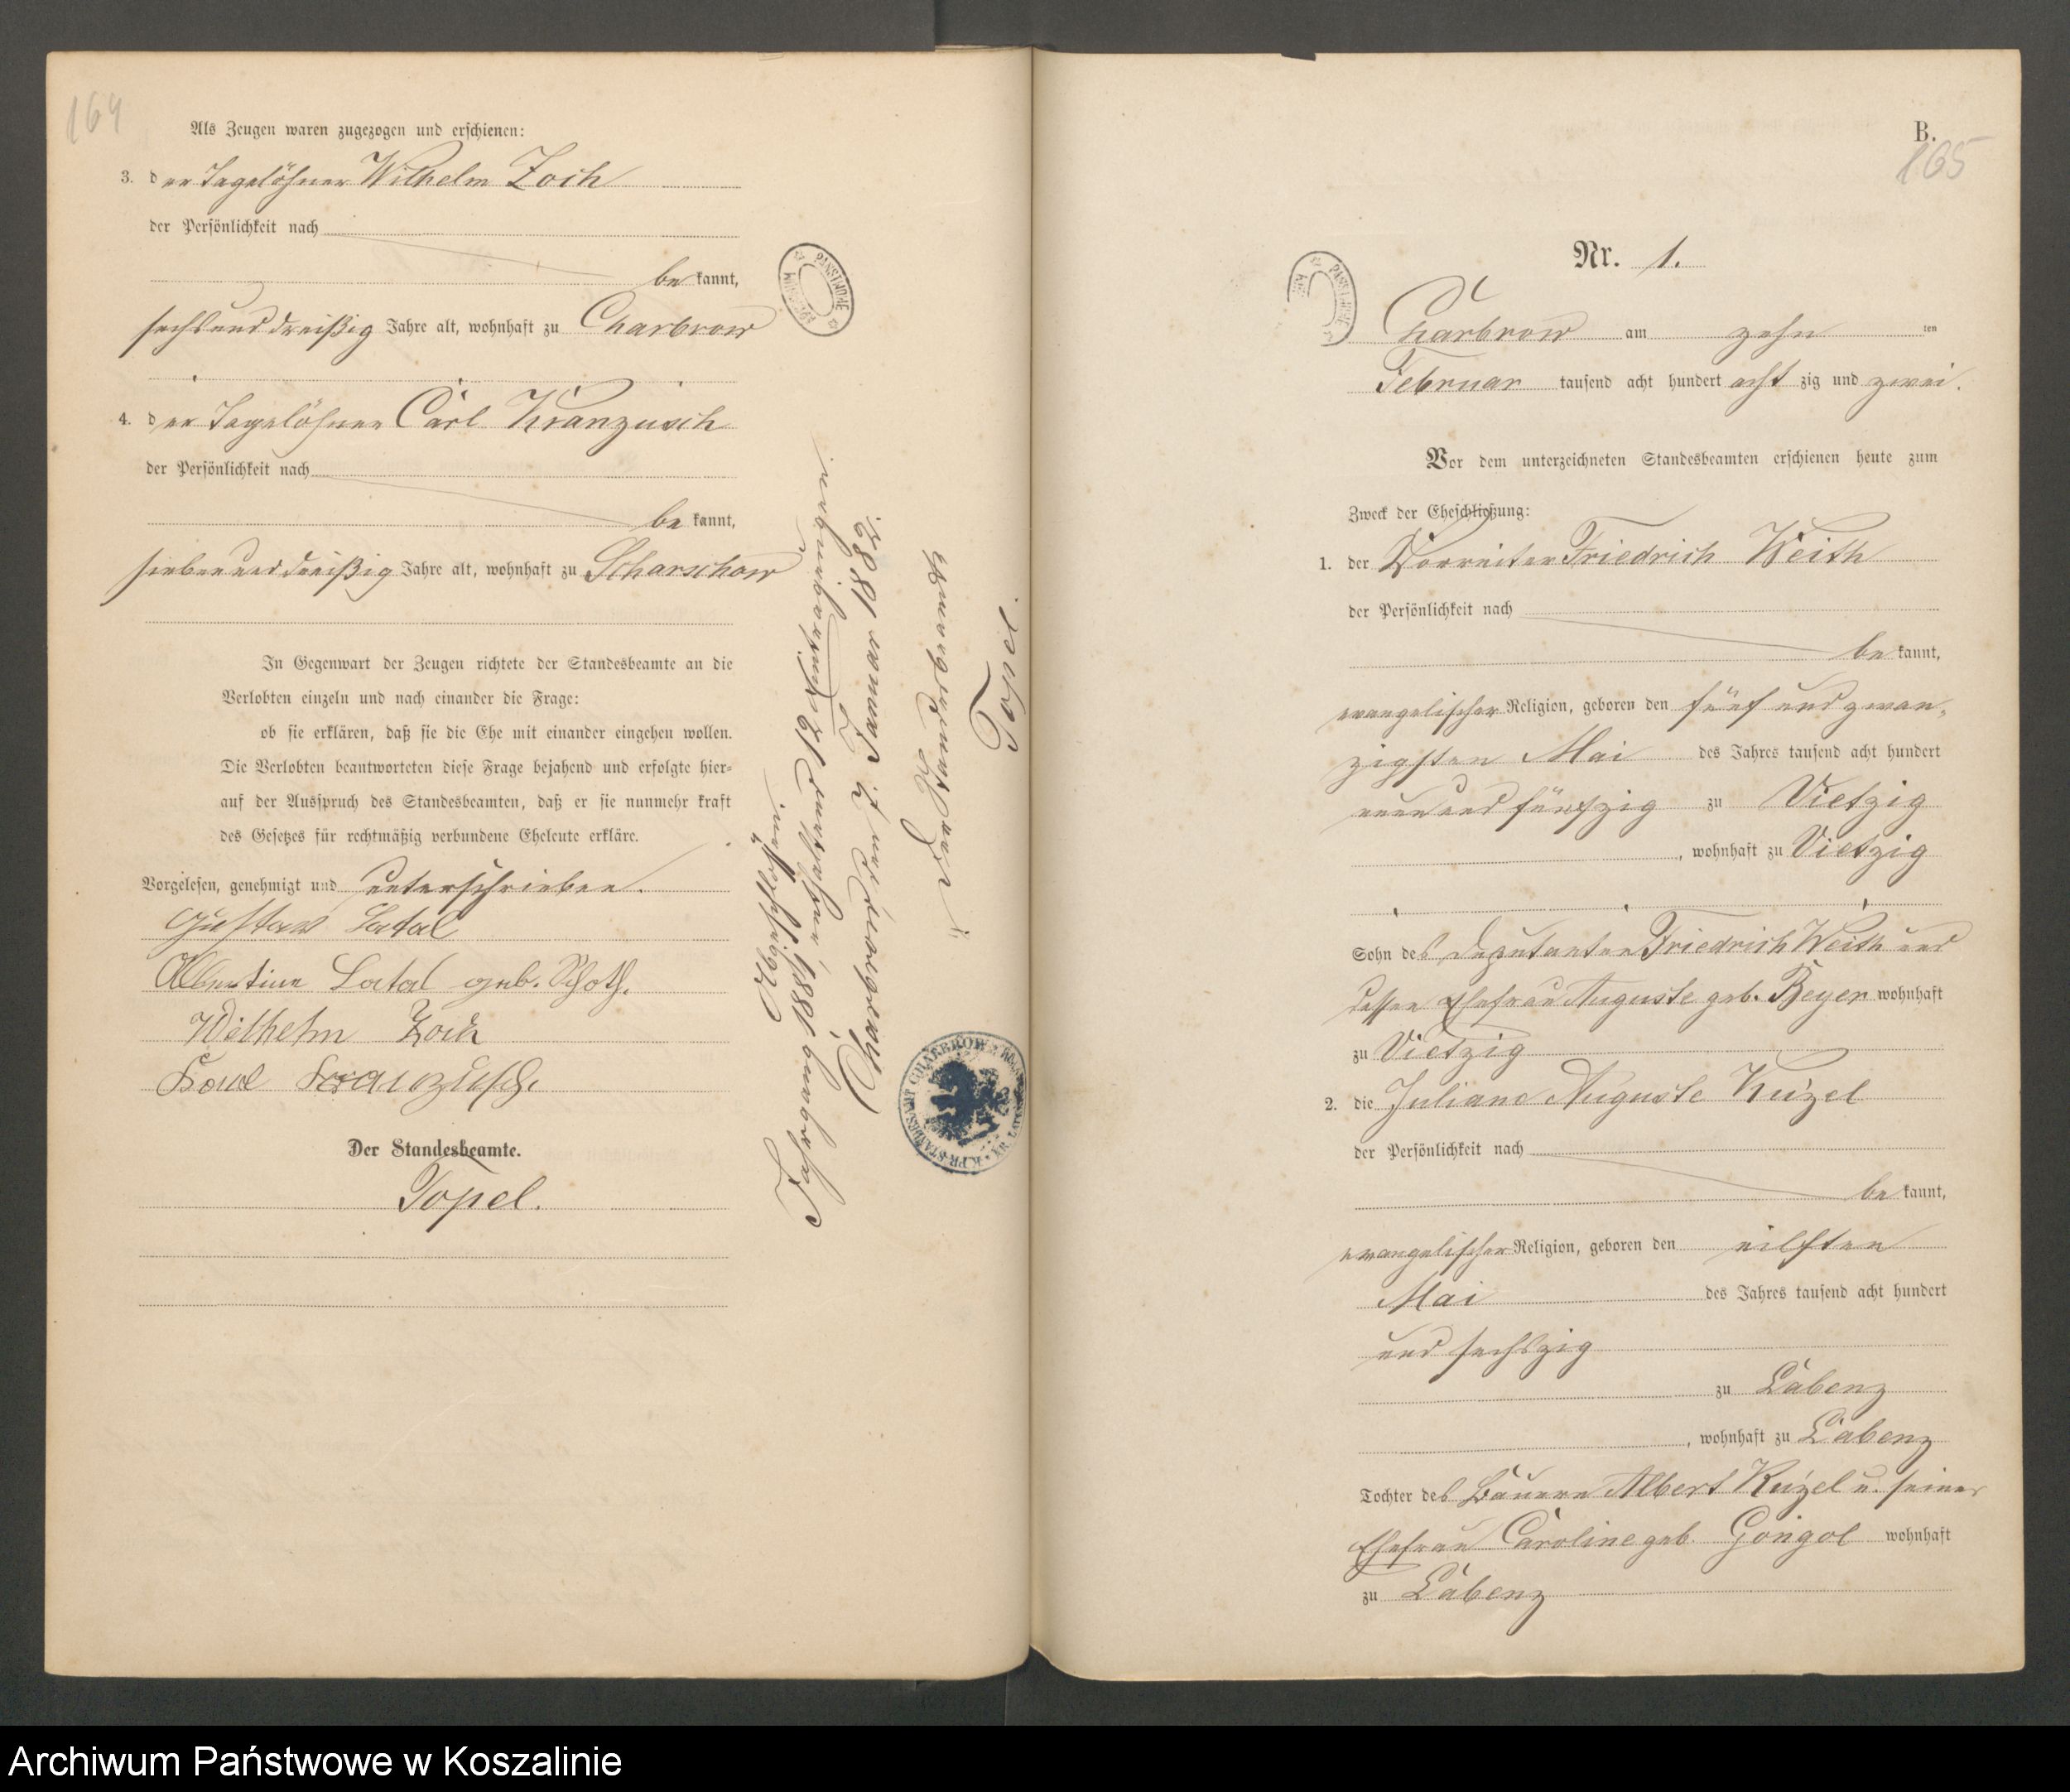 164
Als Zeugen waren zugezogen und erschienen:
3. der Tagelöhner Wilhelm Zoch
der Persönlichkeit nach
bekannt,
sechsunddreißig Jahre alt, wohnhaft zu Charbrow
4. der Tagelöhner Carl Kranzusch
der Persönlichkeit nach
bekannt,
siebenunddreißig Jahre alt, wohnhaft zu Scharschow
In Gegenwart der Zeugen richtete der Standesbeamte an die
Verlobten einzeln und nach einander die Frage:
ob sie erklären, daß sie die Ehe mit einander eingehen wollen.
Die Verlobten beantworteten diese Frage bejahend und erfolgte hier-
auf der Ausspruch des Standesbeamten, daß er sie nunmehr kraft
des Gesetzes für rechtmäßig verbundene Eheleute erkläre.
Vorgelesen, genehmigt und unterschrieben.
Gustav Latal
Albertine Latal geb. Schoth.
Wilhelm Zoch
Karl Kranzusch.
Der Standesbeamte.
Topel.
Abgeschlossen.
Jahrgang 1881, enthaltend 12 Eintragungen.
Charbrow, den 7. Januar 1882.
Der Standesbeamte
Topel.
B.
165
Nr. 1.
Charbrow am zehnten
Februar tausend acht hundert achtzig und zwei.
Vor dem unterzeichneten Standesbeamten erschienen heute zum
Zweck der Eheschließung:
1. der Vorreiter Friedrich Weith
der Persönlichkeit nach
bekannt,
evangelischer Religion, geboren den fünf und zwan-
zigsten Mai des Jahres tausend acht hundert
neunundfünfzig zu Vietzig
, wohnhaft zu Vietzig
Sohn des Deputanten Friedrich Weith und
dessen Ehefrau Auguste geb. Beyer wohnhaft
zu Vietzig
2. die Juliane Auguste Kuzel
der Persönlichkeit nach
bekannt,
evangelischer Religion, geboren den eilften
Mai des Jahres tausend acht hundert
und sechszig
zu Labenz
, wohnhaft zu Labenz
Tochter des Bauern Albert Kuzel u. seiner
Ehefrau Caroline geb. Gongol wohnhaft
zu Labenz
Archiwum Państwowe w Koszalinie